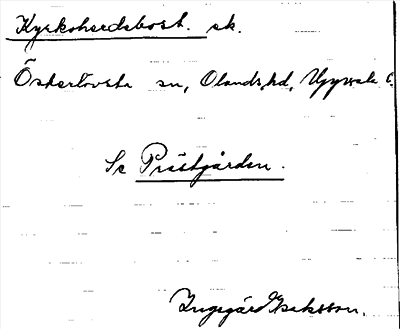 Kyrkoherdsbost. sk.
Österlövsta sn, Olands hd, Uppsala C.
Se Prästgården.
Ingegärd Isaksson.